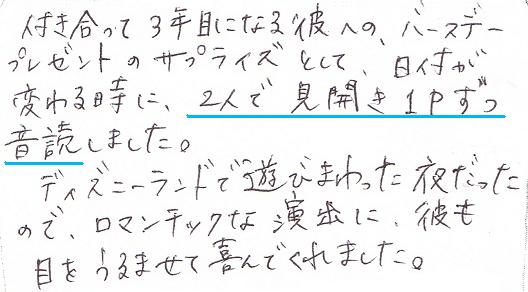 付き合って3年目になる彼への、バースデー
プレゼントのサプライズとして、日付が
変わる時に、2人で見開き1Pずつ
音読しました。
ディズニーランドで遊びまわった夜だった
ので、ロマンチックな演出に、彼も
目をうるませて喜んでくれました。